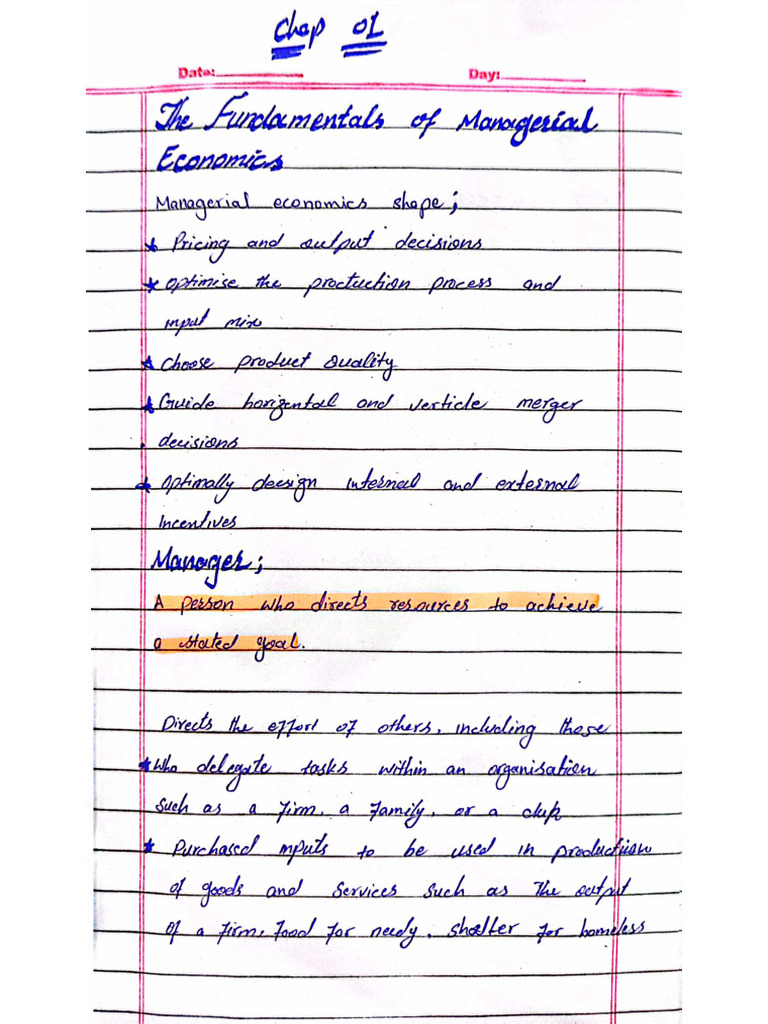 Chap 01
Date: Day:
The Fundamentals of Managerial
Economics
Managerial economics shape;
* Pricing and output decisions
* optimise the proctuction process and
input mix
* Choose product Quality
* Guide horizental and verticle merger
decisions
* Optimally deesign internal and external
Incentives
Manager;
A person who directs resources to achieve
a stated goal.
Directs the effort of others, including those
* Who delegate tasks within an organisation
such as a firm, a family, or a
* Purchased inputs to be used in production
of goods and services such as the output
of a firm, food for needy, shelter for homeless